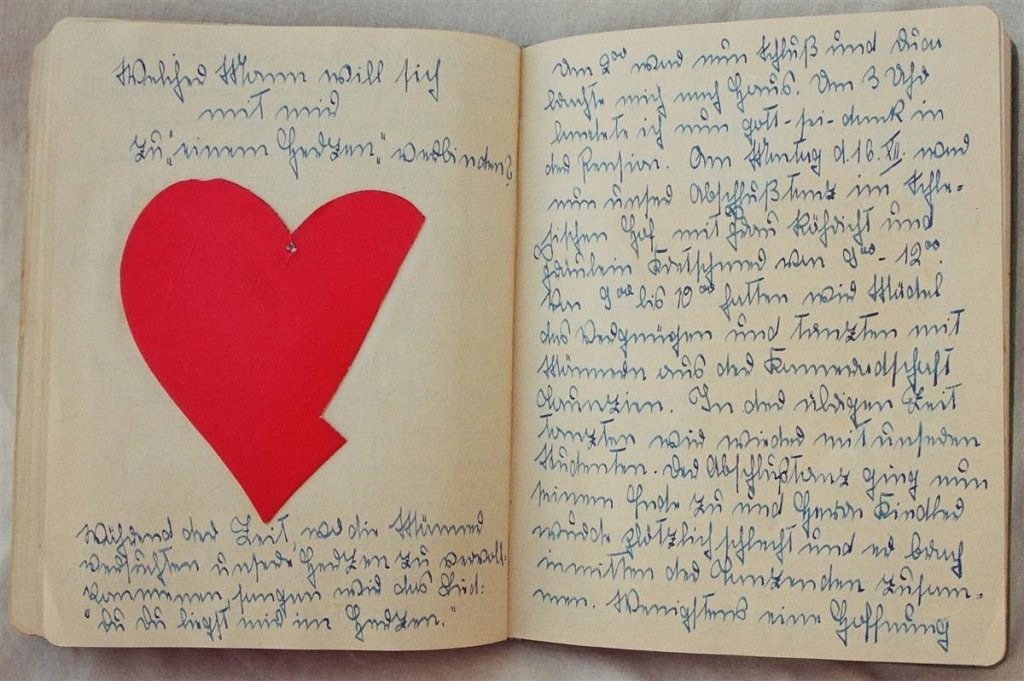 Welcher Mann will sich
mit mir
zu „einem Herzen“ verbinden?
Während der Zeit, wo die Männer
versuchten unsere Herzen zu vervoll-
kommenen, sangen wir das Lied:
"Du Du liegst mir im Herzen."
Um 2⁰⁰ war nun Schluß und
brachte mich nach Haus. Um 3 Uhr
landete ich nun gott-sei-dank in
der Pension. Am Montag d. 16. XII. war
nun unser Abschlußtanz im Schle-
sischen Hof mit Frau Röhricht und
Fräulein Kretschmer von 9⁰⁰ - 12⁰⁰.
Von 9⁰⁰ bis 10⁰⁰ hatten wir Mädel
das Vergnügen und tanzten mit
Männern aus der Kameradschaft
Tauenzien. In der übrigen Zeit
tanzten wir wieder mit unseren
Studenten. Der Abschlußtanz ging nun
seinem Ende zu und Herrn Kindler
wurde plötzlich schlecht und er brach
inmitten der Tanzenden zusam-
men. Wenigstens eine Hoffnung